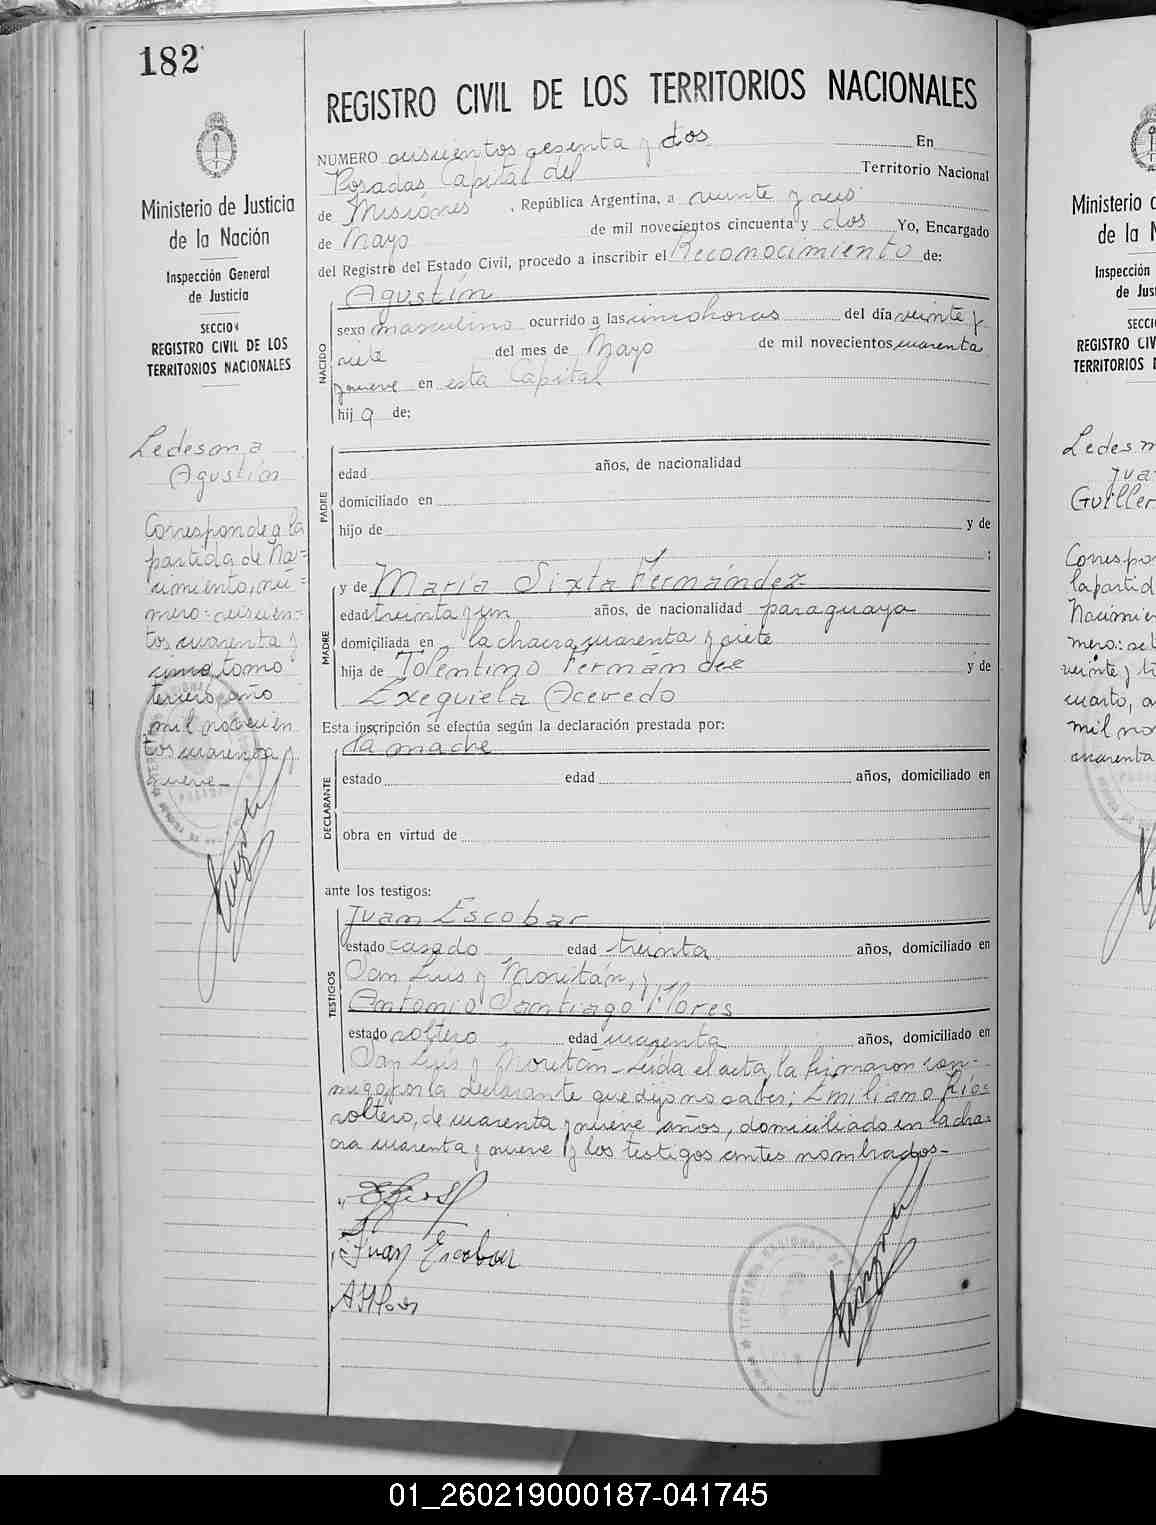 182
REGISTRO CIVIL DE LOS TERRITORIOS NACIONALES
Ministerio de Justicia
de la Nación
Inspección General
de Justicia
SECCION
REGISTRO CIVIL DE LOS
TERRITORIOS NACIONALES
Ledesma
Agustín
Corresponde a la
partida de Na=
cimiento, nú=
mero: cuscien=
tos cuarenta y
cinco, tomo
tercero, año
mil novecien
tos cuarenta y
nueve_
NUMERO ciuscientos sesenta y dos En
Posadas, Capital del Territorio Nacional
de Misiones, República Argentina, a veinte y seis
de Mayo de mil novecientos cincuenta y dos Yo, Encargado
del Registro del Estado Civil, procedo a inscribir el Reconocimiento de:
NACIDO
Agustín
sexo masculino ocurrido a las cinco horas del día veinte y
siete del mes de Mayo de mil novecientos cuarenta
y nueve en esta Capital
hij o de:
PADRE
edad años, de nacionalidad
domiciliado en
hijo de y de
:
MADRE
y de María Sixta Fernández
edad treinta y un años, de nacionalidad paraguaya
domiciliada en la chacra cuarenta y siete
hija de Tolentino Fernández y de
Exequiela Acevedo
Esta inscripción se efectúa según la declaración prestada por:
DECLARANTE
la madre
estado edad años, domiciliado en
obra en virtud de
ante los testigos:
TESTIGOS
Juan Escobar
estado casado edad treinta años, domiciliado en
San Luis y Moritán, y
Antonio Santiago Flores
estado soltero edad cuarenta años, domiciliado en
San Luis y Moritán_Leída el acta, la firmaron con-
migo, por la declarante que dijo no saber; Emiliano Ríos
soltero, de cuarenta y nueve años, domiciliado en la cha=
cra cuarenta y nueve y los testigos antes nombrados_
Juan Escobar
Ministerio
de la N
Inspección
de Jus
SECCI
REGISTRO CIV
TERRITORIOS
Ledesm
Jua
Guiller
Correspo
la partid
Nacimie
mero: se
veinte y t
cuarto, a
mil no
cuarenta
01_260219000187-041745